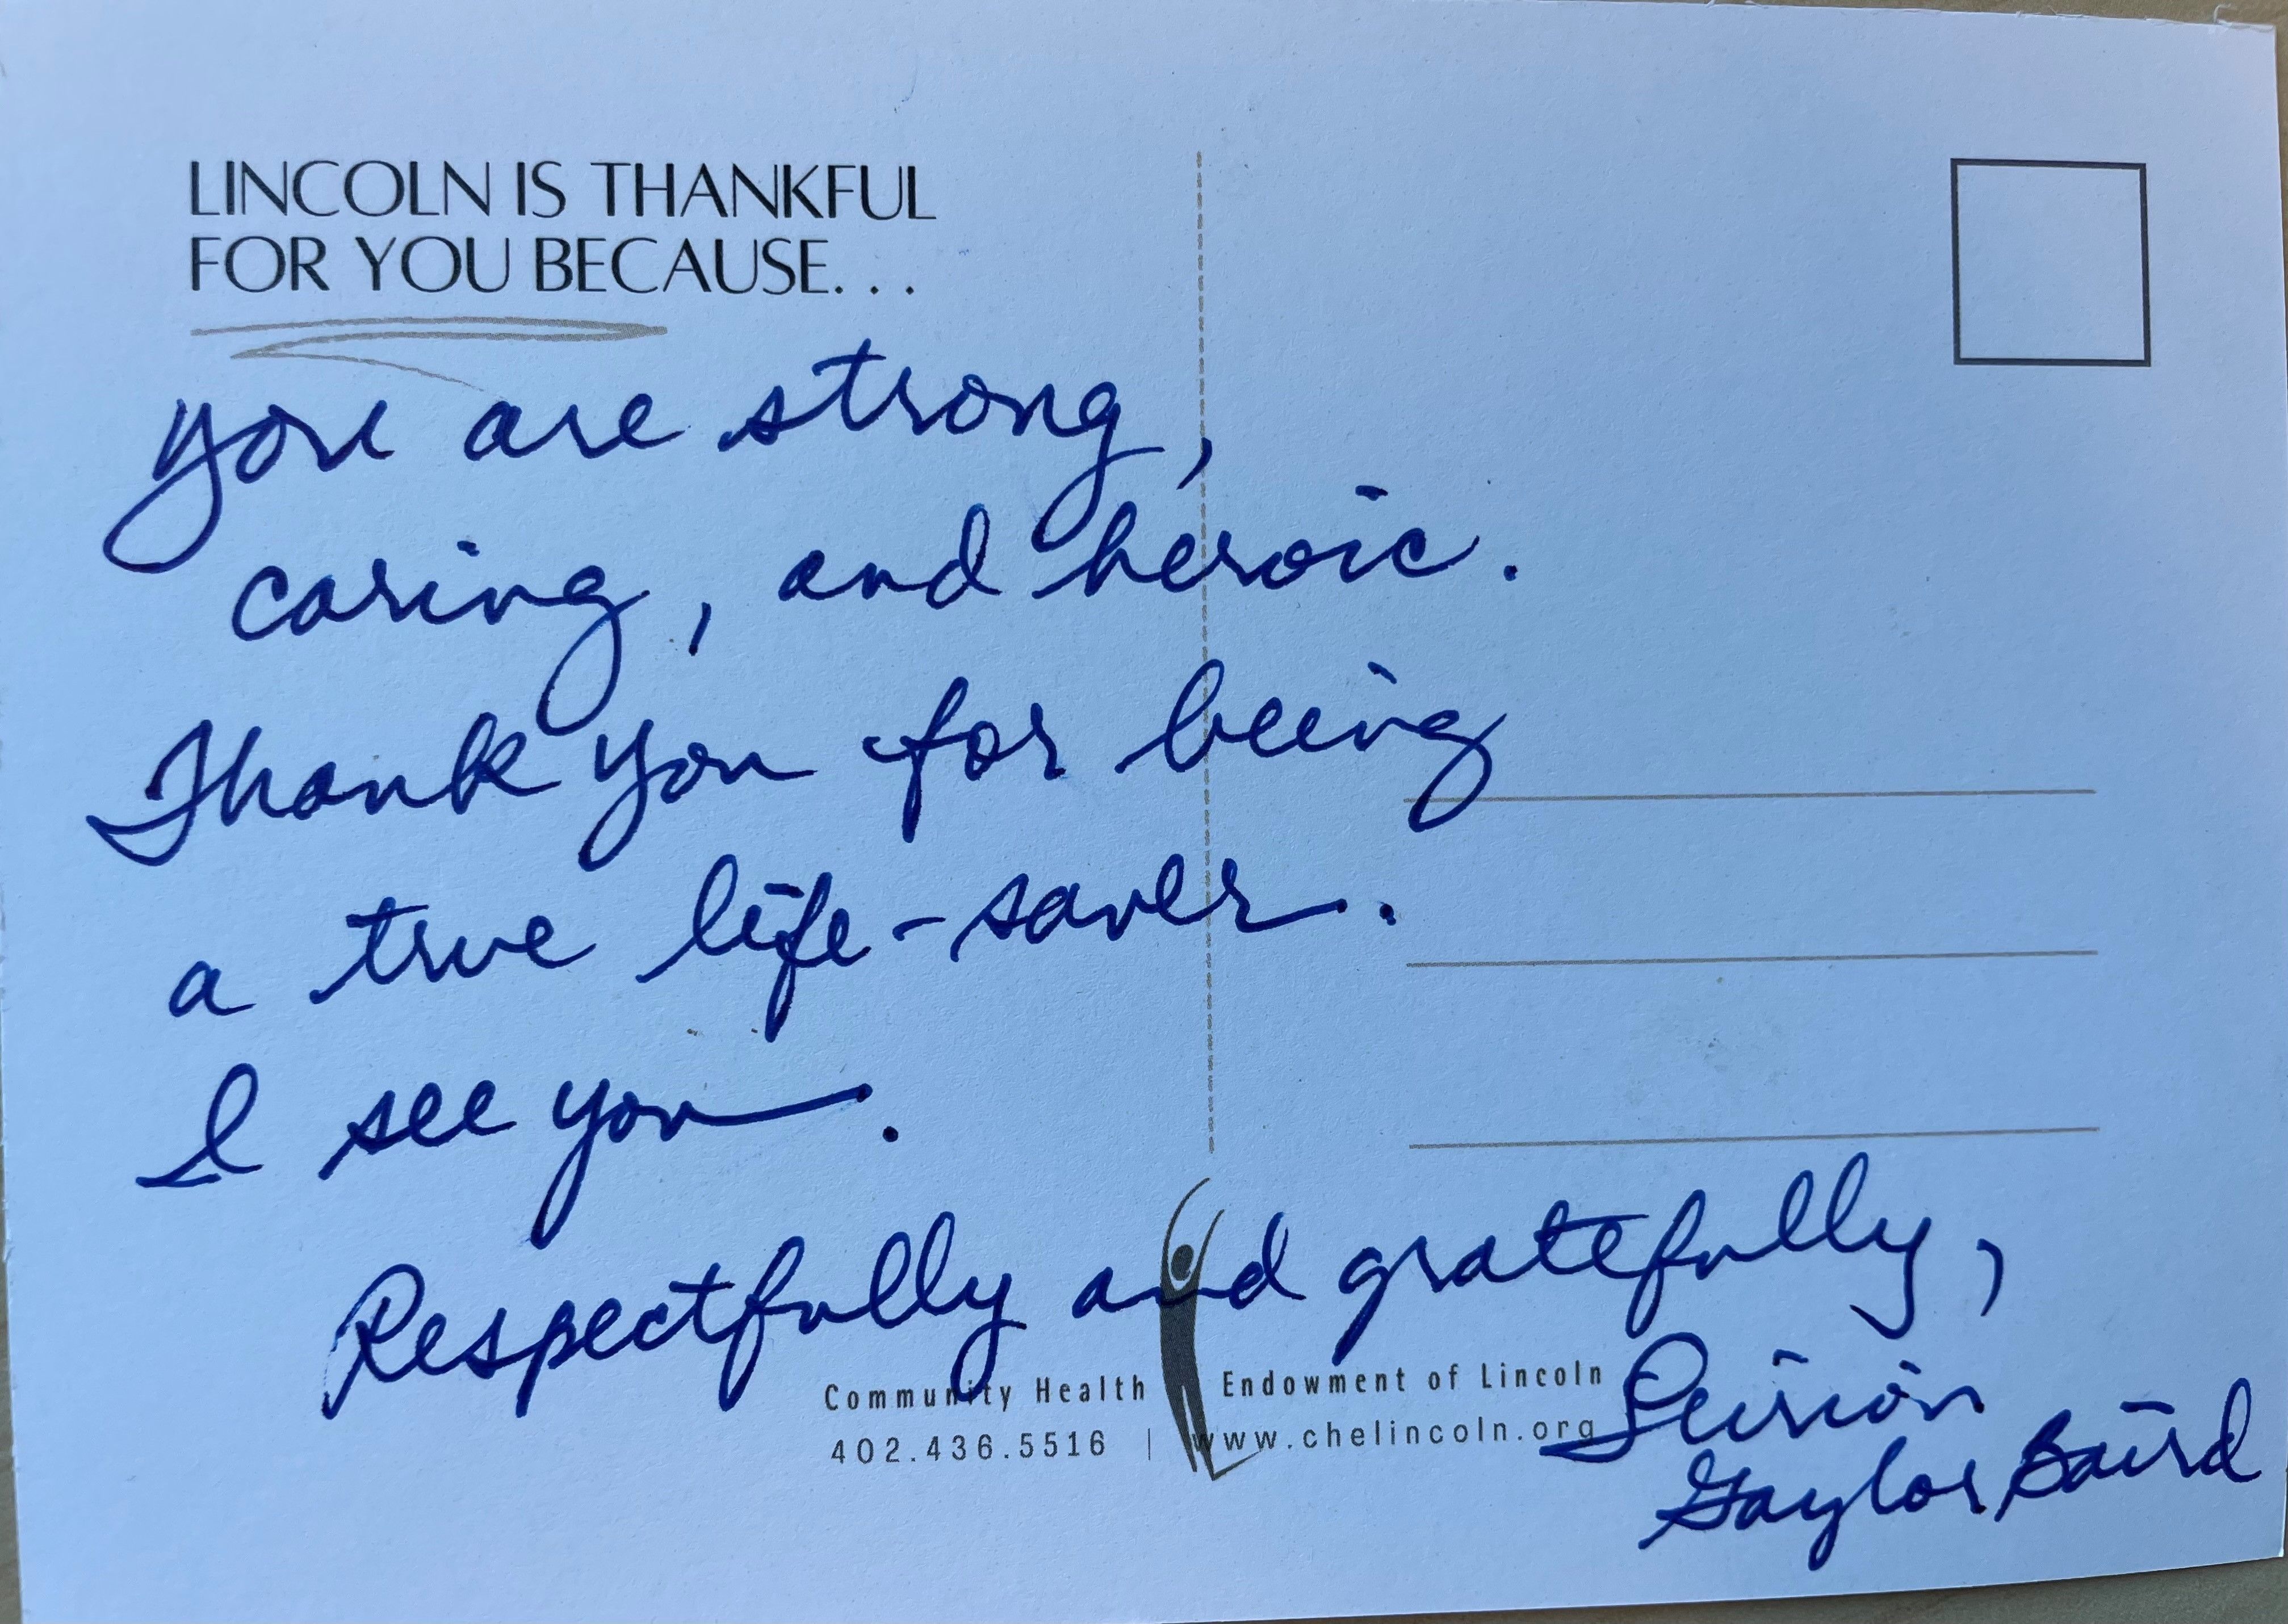 LINCOLN IS THANKFUL
FOR YOU BECAUSE. . .
you are strong,
caring, and heroic.
Thank you for being
a true life-saver.
I see you.
Respectfully and gratefully,
Leirion
Gaylor Baird
Community Health Endowment of Lincoln
402.436.5516 | www.chelincoln.org